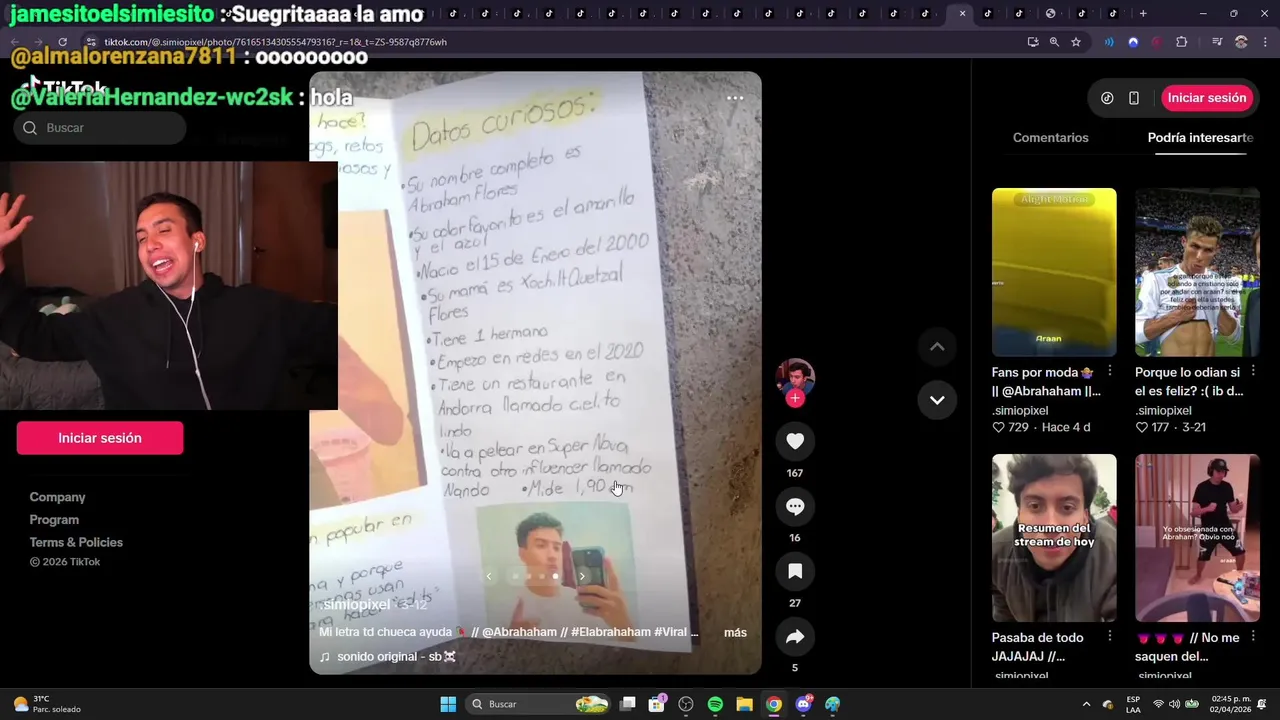 jamesitoelsimiesito : Suegritaaaa la amo
tiktok.com/@.simiopixel/photo/7616513430555479316?_r=1&_t=ZS-9587q8776wh
@almalorenzana7811 : ooooooooo
TikTok
@ValeriaHernandez-wc2sk : hola
Buscar
Iniciar sesión
Company
Program
Terms & Policies
© 2026 TikTok
hace?
ogs, retos
iosos y
n popular en
Datos curiosos:
•Su nombre completo es
Abraham Flores
•Su color favorito es el amarillo
y el azul
•Nacio el 15 de Enero del 2000
•Su mamá es Xochilt Quetzal
Flores
•Tiene 1 hermano
•Empezo en redes en el 2020
•Tiene un restaurante en
Andorra llamado cielito
lindo
•Va a pelear en Super Nova
contra otro influencer llamado
Nando •Mide 1,90 cm
.simiopixel · 3-12
Mi letra td chueca ayuda // @Abrahaham // #Elabrahaham #Viral ...
más
sonido original - sb
167
16
27
5
Iniciar sesión
Comentarios
Podría interesarte
Alight Motion
Araan
Fans por moda
|| @Abrahaham ||...
.simiopixel
729 · Hace 4 d
Porque lo odian si
el es feliz? :( ib d...
.simiopixel
177 · 3-21
Resumen del
stream de hoy
Pasaba de todo
JAJAJAJ //...
.simiopixel
Yo obsesionada con
Abraham? Obvio noo
araan
// No me
saquen del...
.simiopixel
31°C
Parc. soleado
Buscar
ESP
LAA
02:45 p. m.
02/04/2026